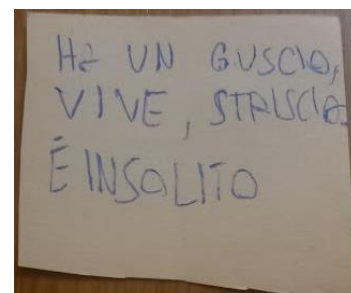 Ha UN GUSCIO,
VIVE, STRISCIA.
É INSOLITO